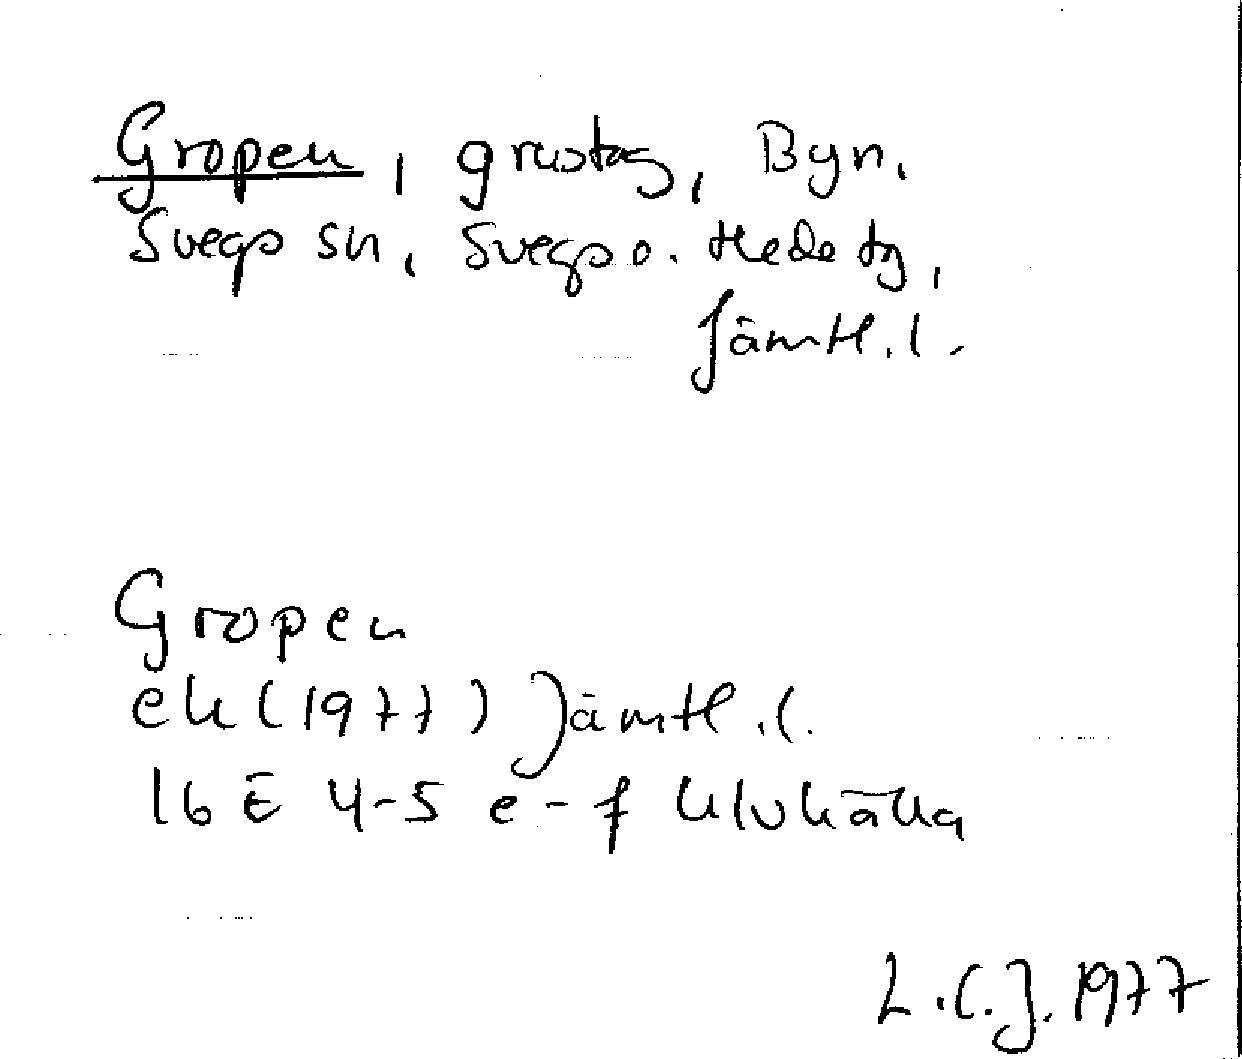 Gropen, grustag, Byn,
Svegs sn, Svegs o. Hede tg,
Jämtl. l.
Gropen
ek (1977) Jämtl. l.
16 E 4-5 e-f Klukälla
L.C.J. 1977